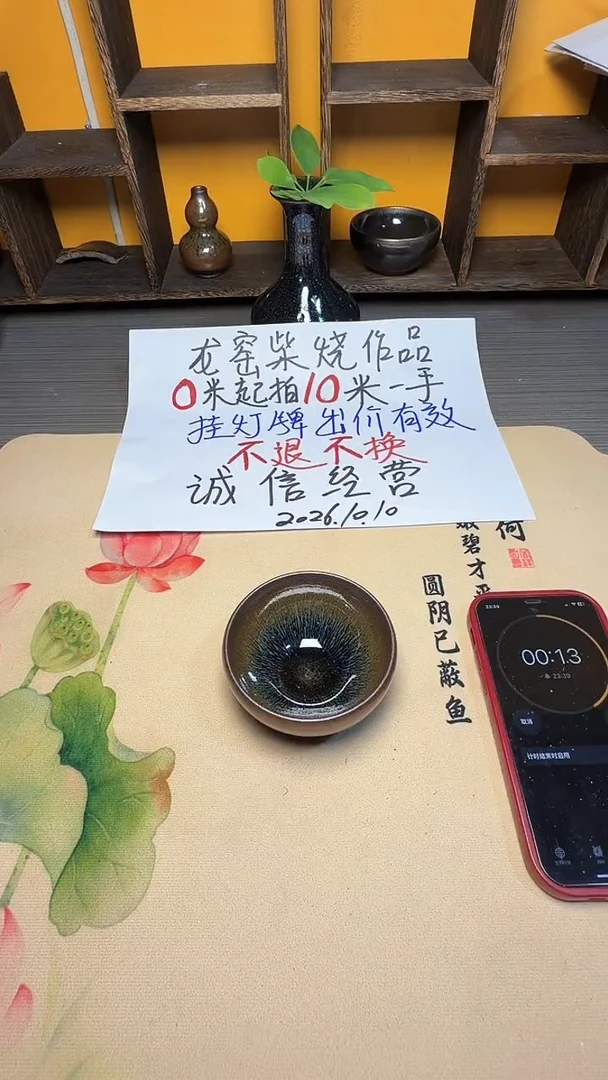 龙窑柴烧作品
0米起拍10米一手
挂灯牌出价有效
不退不换
诚信经营
2026.10.10
荷
碧才平
圆阴已蔽鱼
23:39
00:13
23:39
取消
计时结束时启用